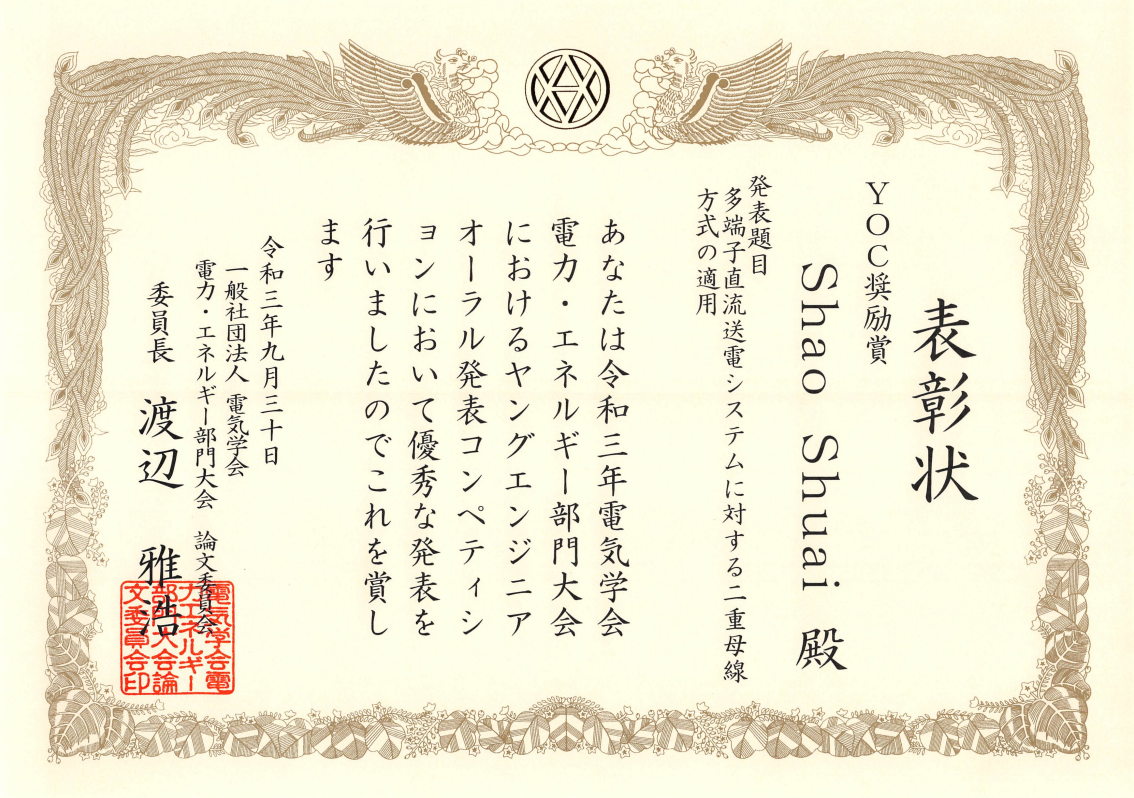 表彰状
YOC奨励賞
Shao Shuai 殿
発表題目
多端子直流送電システムに対する二重母線
方式の適用
あなたは令和三年電気学会
電力・エネルギー部門大会
におけるヤングエンジニア
オーラル発表コンペティシ
ョンにおいて優秀な発表を
行いましたのでこれを賞し
ます
令和三年九月三十日
一般社団法人 電気学会
電力・エネルギー部門大会 論文委員会
委員長 渡辺 雅浩
電気学会電
力エネルギー
部門大会論
文委員会印